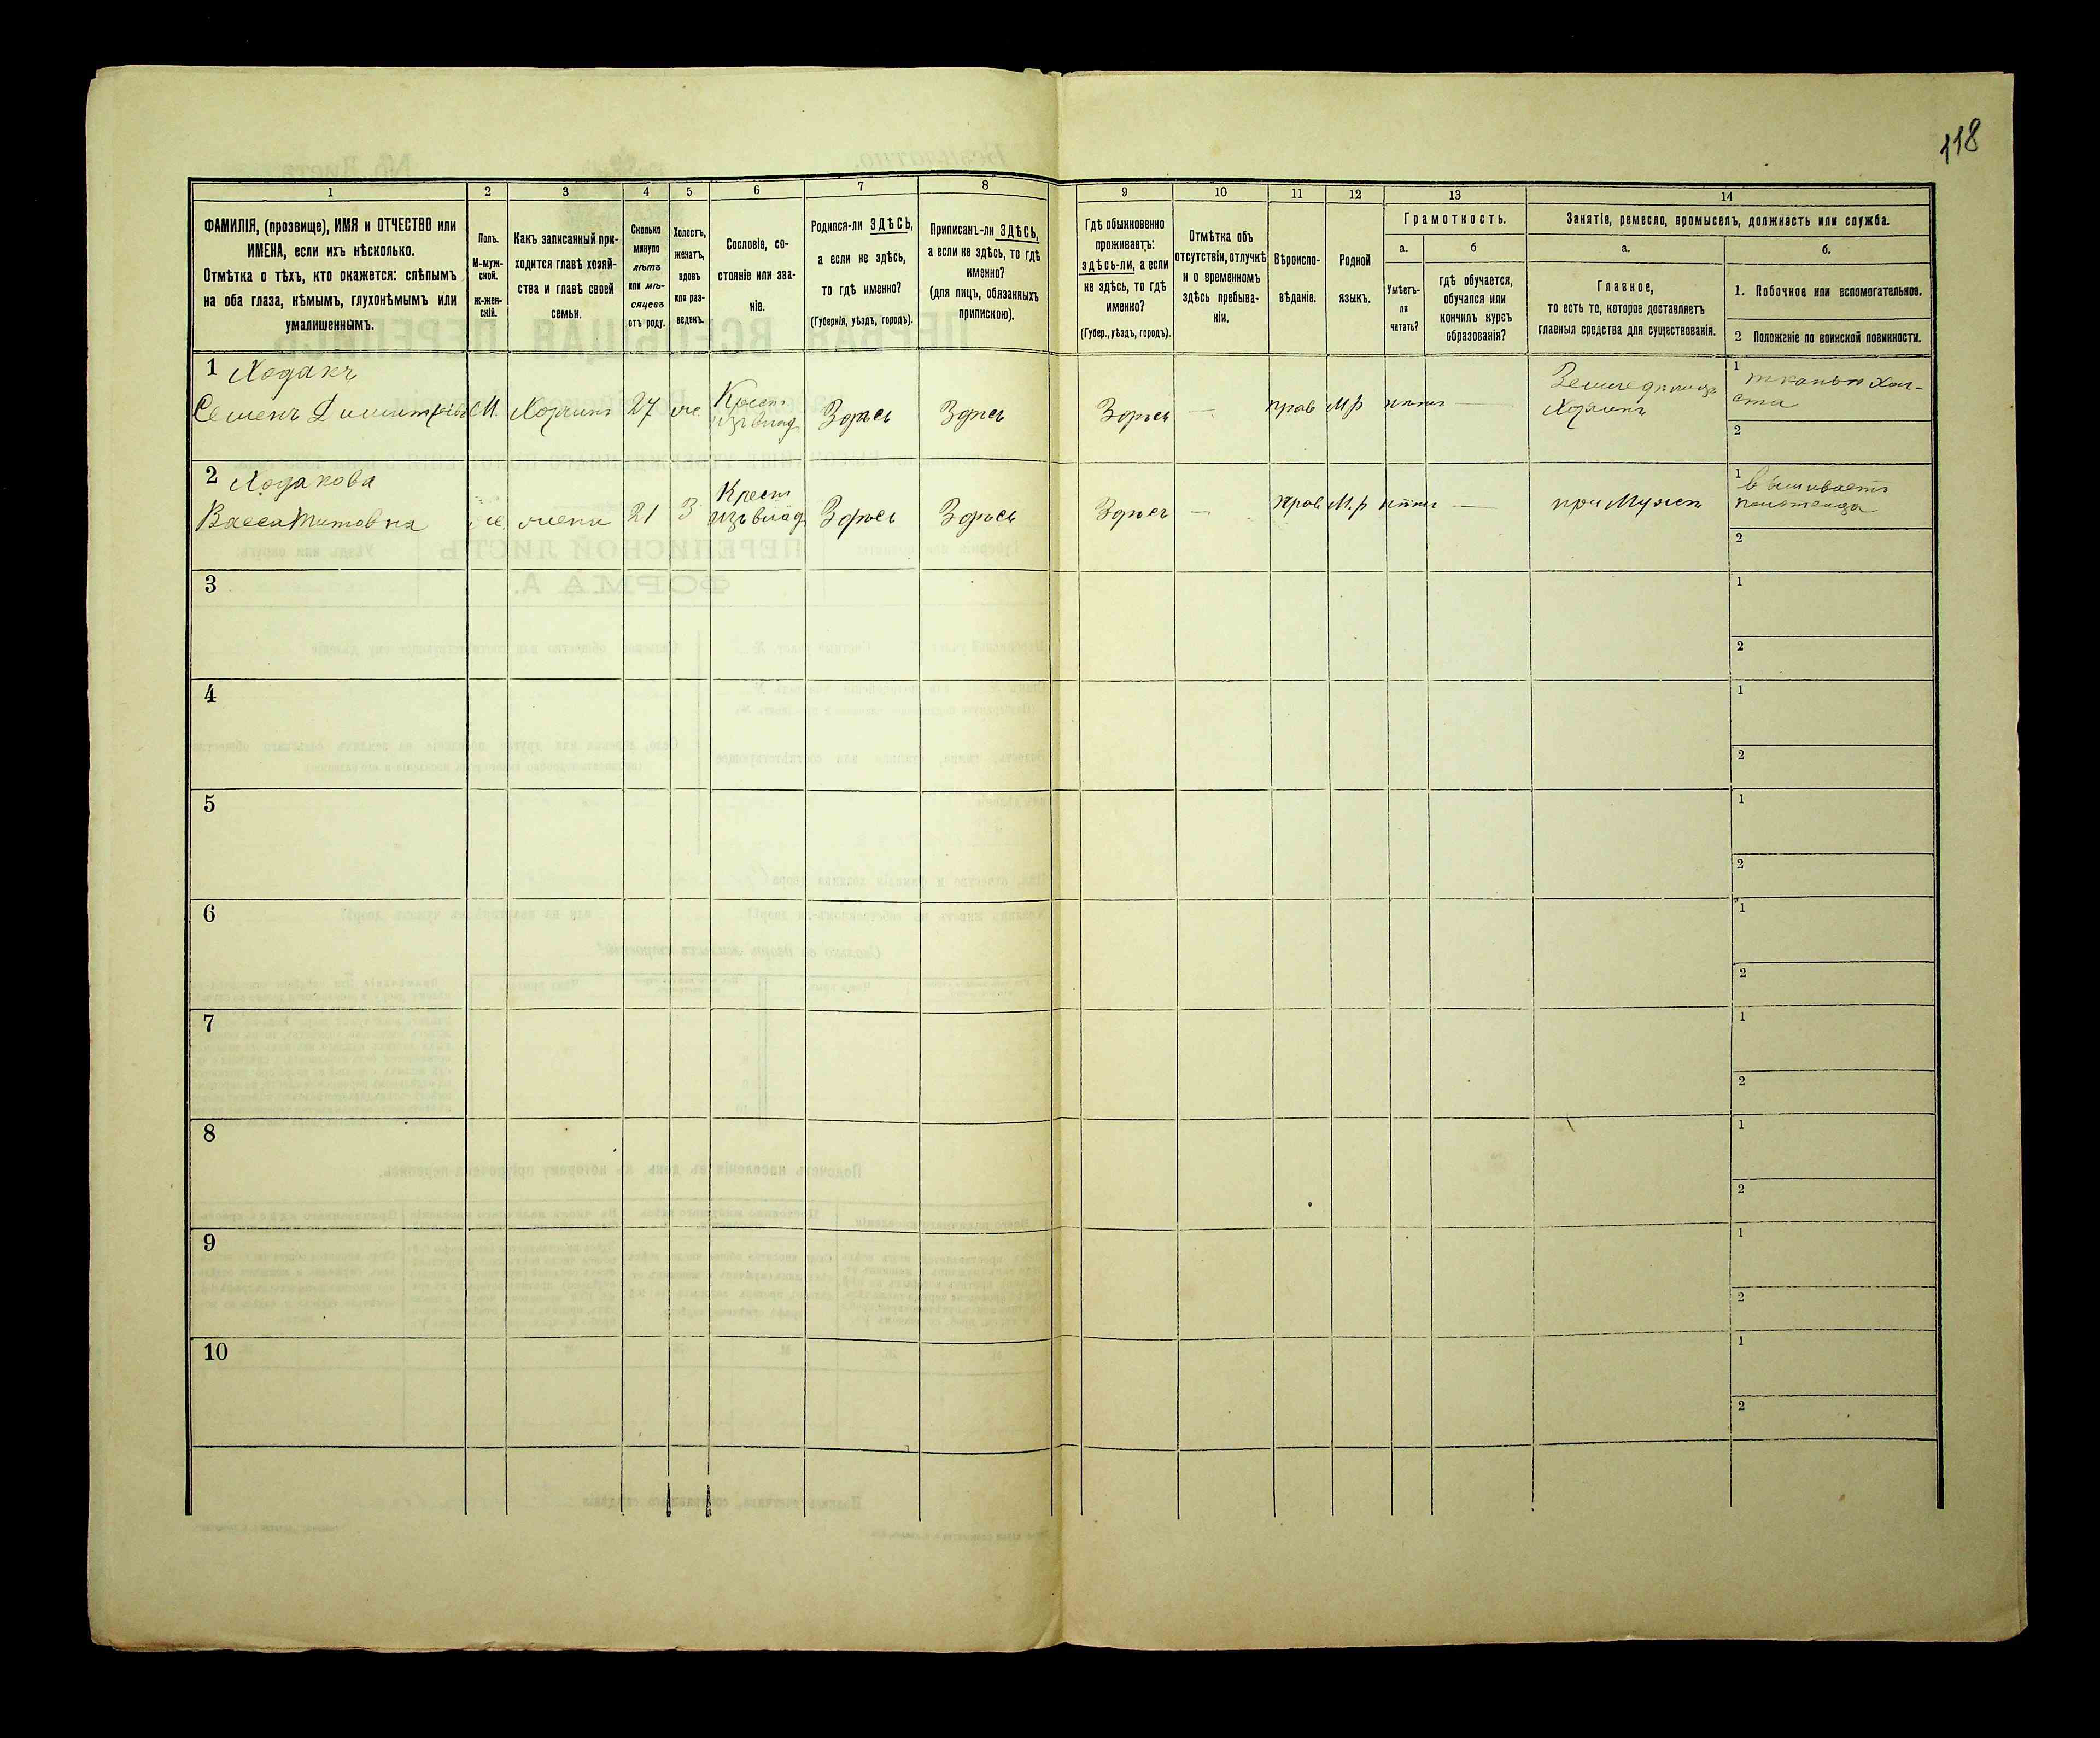 118
1
2
3
4
5
6
7
8
9
10
11
12
13
14
ФАМИЛІЯ, (прозвище), ИМЯ и ОТЧЕСТВО или
ИМЕНА, если ихъ нѣсколько.
Отмѣтка о тѣхъ, кто окажется: слѣпымъ
на оба глаза, нѣмымъ, глухонѣмымъ или
умалишеннымъ.
Полъ.
М-муж-
ской.
ж-жен-
скій.
Какъ записанный при-
ходится главѣ хозяй-
ства и главѣ своей
семьи.
Сколько
минуло
лѣтъ
или мѣ-
сяцевъ
отъ роду.
Холостъ,
женатъ,
вдовъ
или раз-
веденъ.
Сословіе, со-
стояніе или зва-
ніе.
Родился-ли ЗДѢСЬ,
а если не здѣсь,
то гдѣ именно?
(Губернія, уѣздъ, городъ).
Приписанъ-ли ЗДѢСЬ,
а если не здѣсь, то гдѣ
именно?
(для лицъ, обязанныхъ
припискою).
Гдѣ обыкновенно
проживаетъ:
здѣсь-ли, а если
не здѣсь, то гдѣ
именно?
(Губер., уѣздъ, городъ).
Отмѣтка объ
отсутствіи, отлучкѣ
и о временномъ
здѣсь пребыва-
ніи.
Вѣроиспо-
вѣданіе.
Родной
языкъ.
Грамотность.
а.
б
Умѣетъ-
ли
читать?
гдѣ обучается,
обучался или
кончилъ курсъ
образованія?
Занятіе, ремесло, промыселъ, должность или служба.
а.
б.
Главное,
то есть то, которое доставляетъ
главныя средства для существованія.
1. Побочное или вспомогательное.
2 Положеніе по воинской повинности.
1 Ходакъ
Семенъ Димитріевъ М. Хозяинъ 27 ж.
Крест
изъ влад
Здѣсь Здѣсь Здѣсь — прав М р нѣтъ —
Земледѣлецъ
Хозяинъ
1 тканьо хол-
ста
2
2 Ходакова
Васса Титовна ж. жена 21 З
Крест
изъ влад
Здѣсь Здѣсь Здѣсь — прав М. р нѣтъ —
при Мужѣ
1 вышиваетъ
полотенца
2
3
1
2
4
1
2
5
1
2
6
1
2
7
1
2
8
1
2
9
1
2
10
1
2